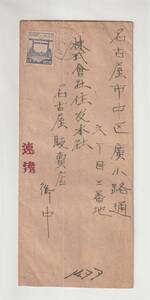 名古屋市中区廣小路通
六丁目三番地
株式會社住友本社
名古屋販賣店
御中
速達